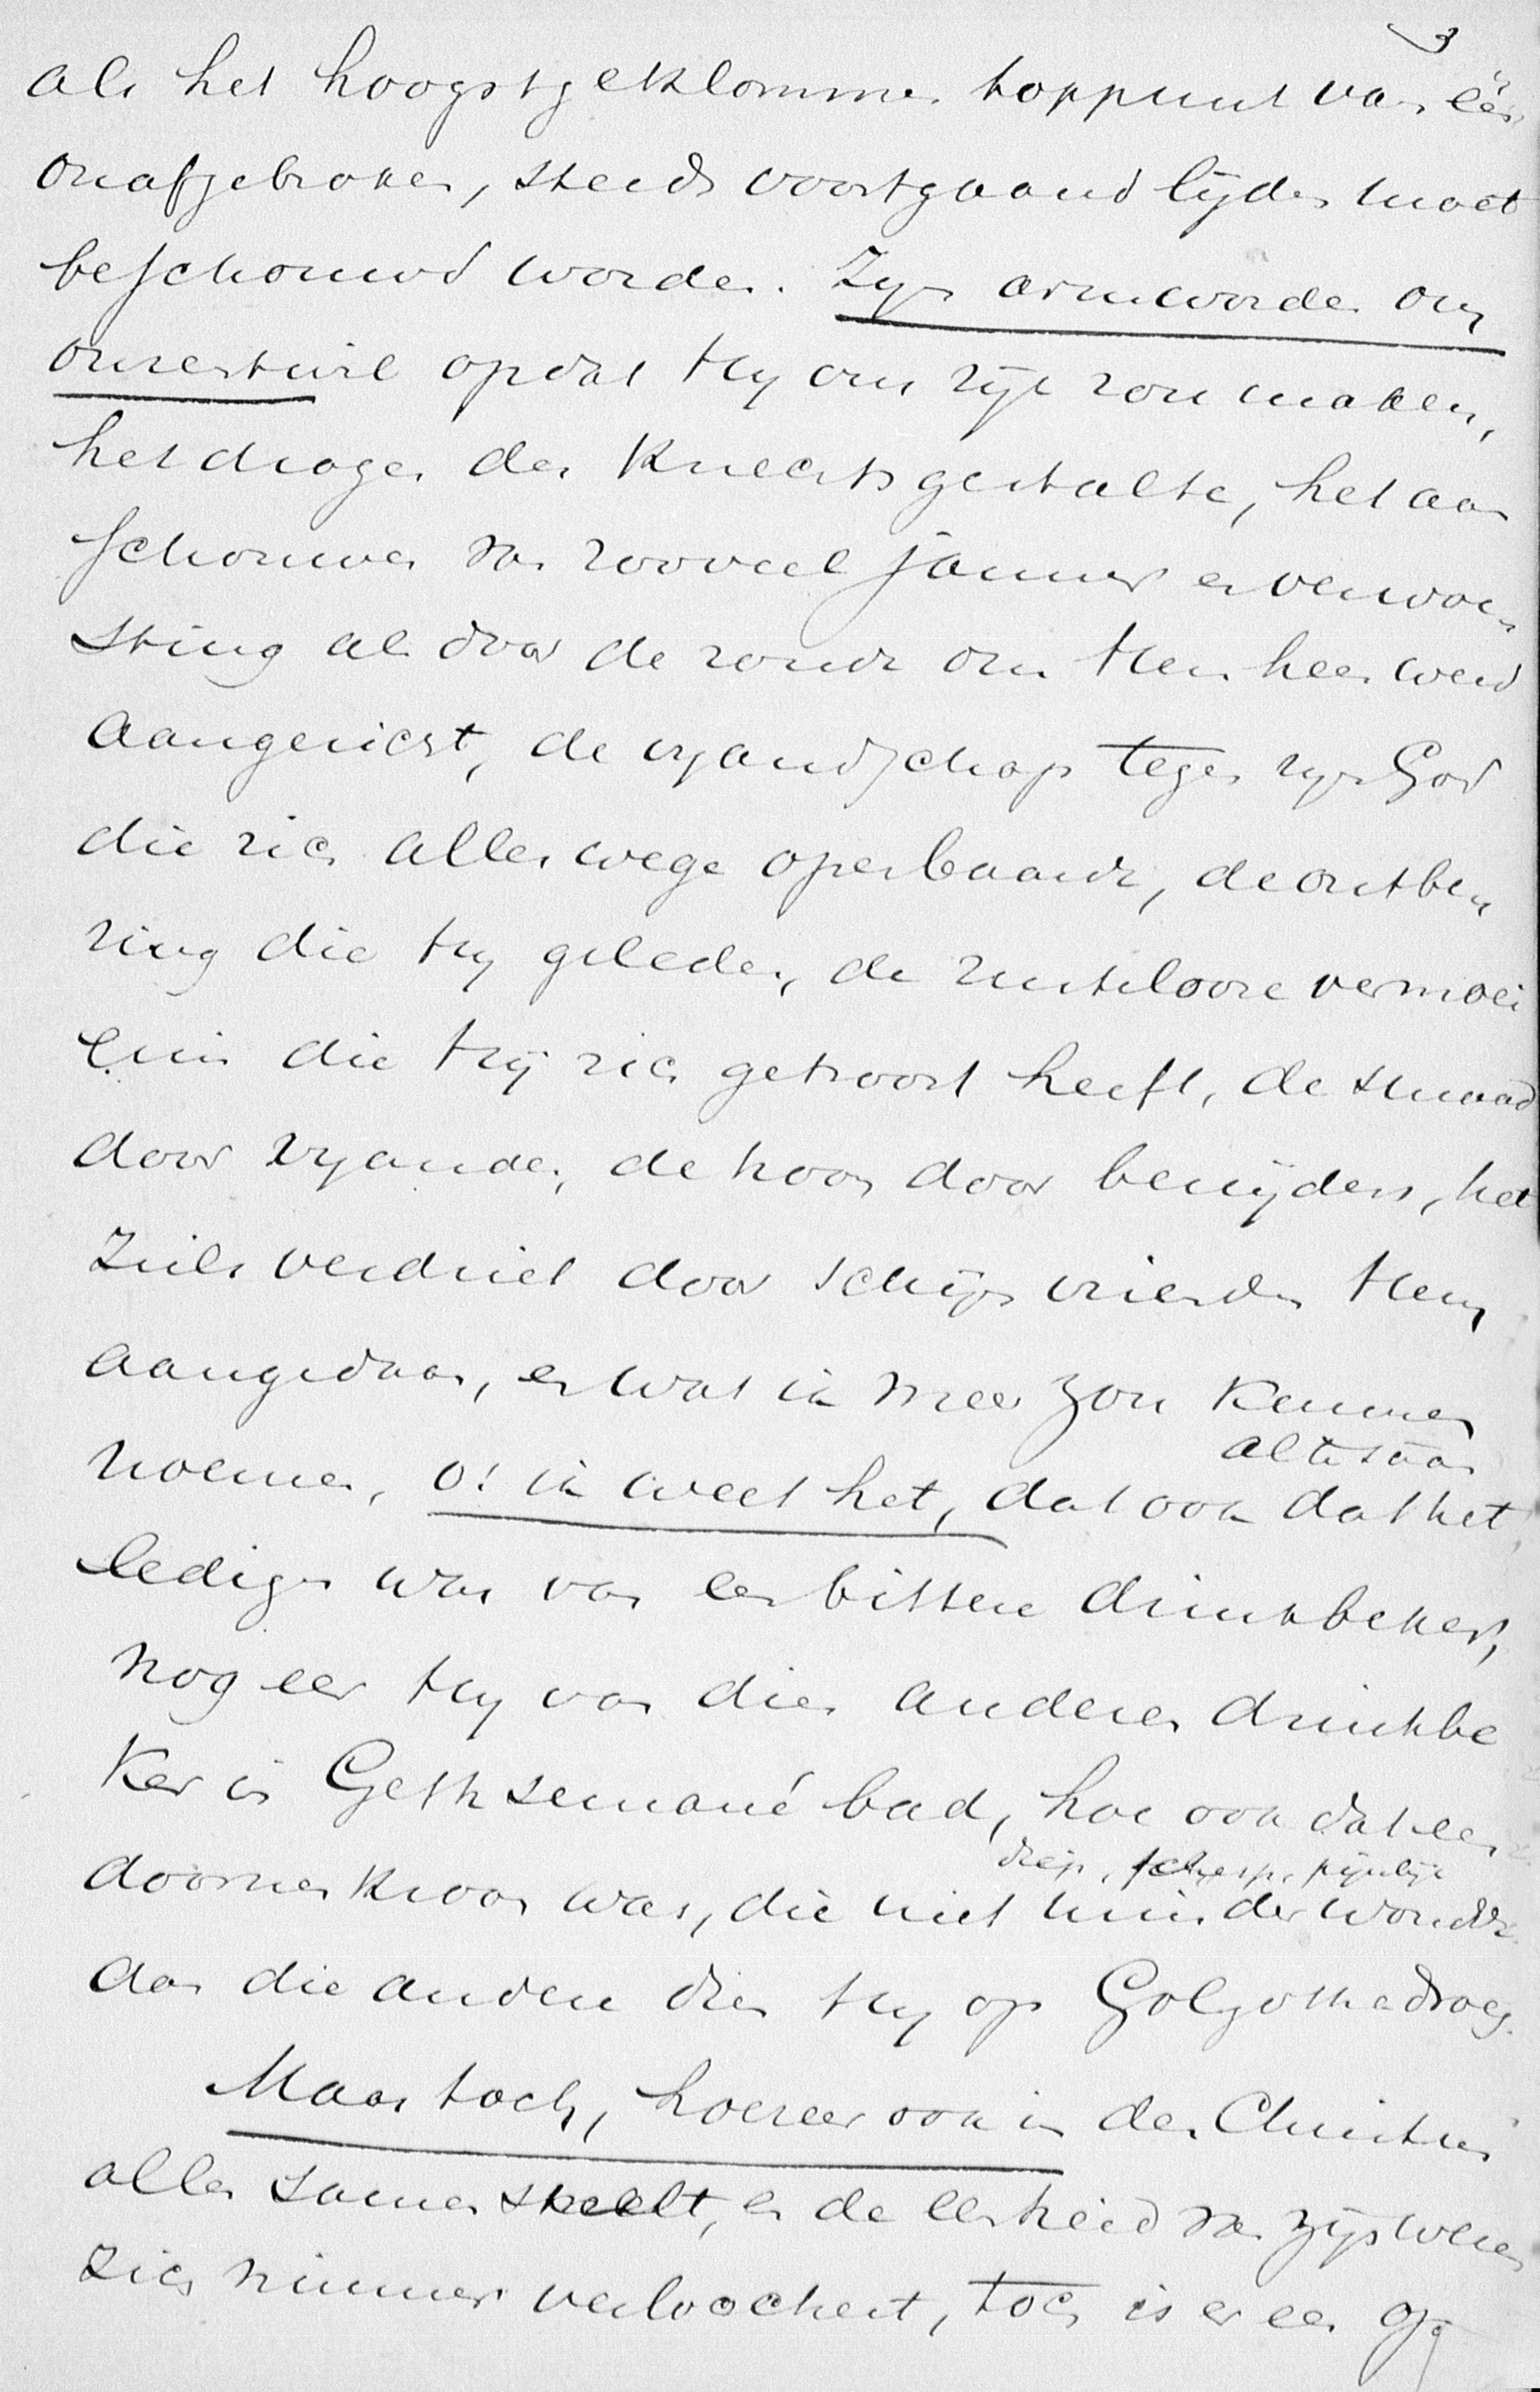 3
als het hoogstgeklommen toppunt van één
onafgebroken, steeds voortgaand lijden moet
beschouwd worden. Zijn armworden om
onzentwil opdat Hij ons rijk zou maken,
het dragen der Knechtsgestalte, het aan
schouwen van zooveel jammer en verwoe
sting als door de zonde om Hem heen werd
aangericht, de vyandschap tegen zijn God
die zich allerwege openbaarde, de ontbe
ring die Hij geleden, de rustelooze vermoei
enis die Hij zich getroost heeft, de smaad
door vyanden, de hoon door benijders, het
zielsverdriet door schijnvrienden Hem
aangedaan, en wat ik meer zou kunnen
altesaam
noemen, o! ik weet het, dat ook dat het
ledigen was van een bittere drinkbeker,
nog eer Hij van dien anderen drinkbe
ker in Gethsemané bad, hoe ook dat een
diep, scherp, pijnlijk
doornenkroon was, die niet minder wondde
dan die andere dien Hij op Golgotha droeg.
Maar toch, hoezeer ook in den Christus
alles samenstelt, en de eenheid van zijn wezen
zich nimmer verloochent, toch is er een op